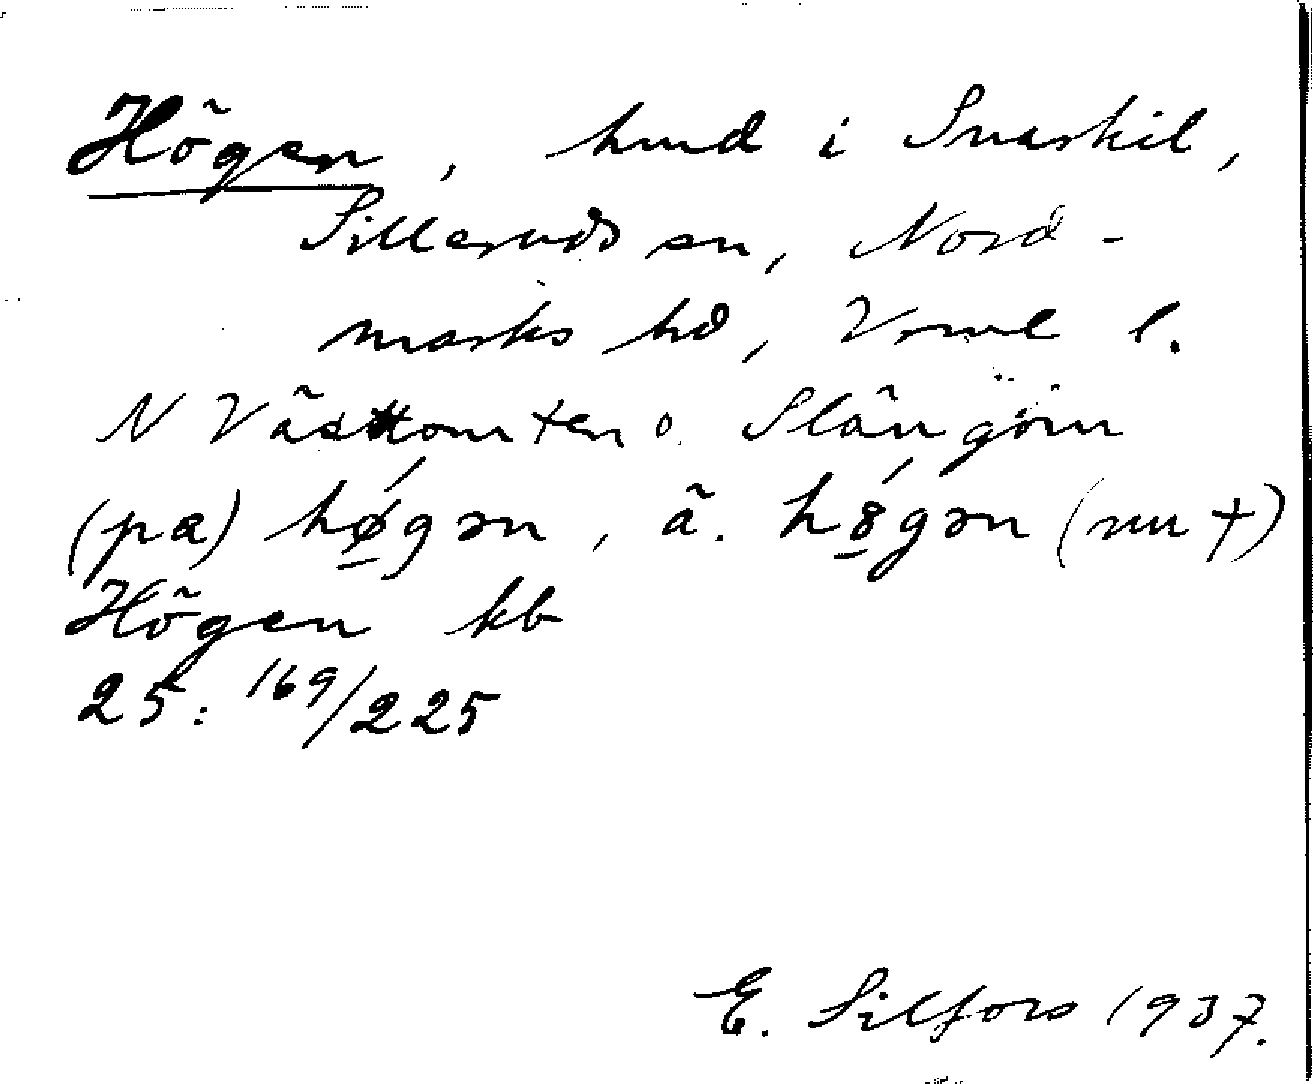 Högen, hmd i Svarkil,
Silleruds sn, Nord-
marks hd, Vrml l.
N Västtomten o. Slängöm
(pa) høgən, ä. h8gən (nu †)
Högen kb
25: 169/225
E. Silfors 1937.